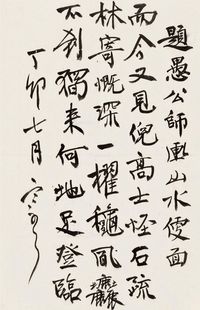 題愚公師画山水便面
而今又見倪高士怪石疏
林寄慨深一櫂穐風
不到獨来何地足登臨
丁卯七月